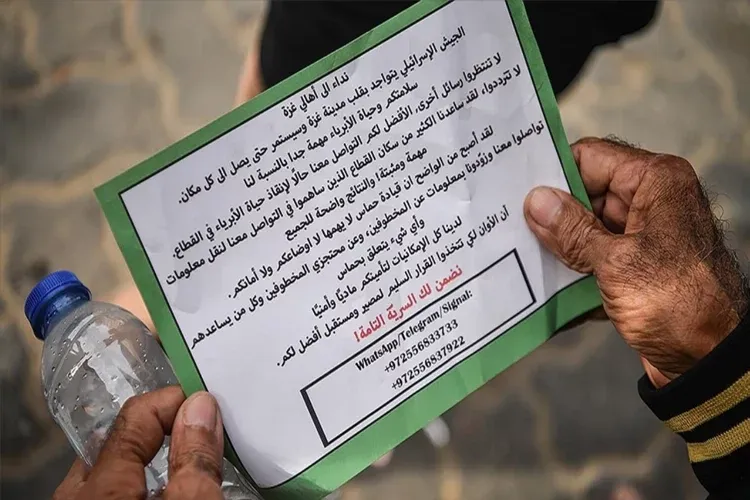 نداء الى أهالي غزة
الجيش الإسرائيلي يتواجد بقلب مدينة غزة وسيستمر حتى يصل ال كل مكان.
سلامتكم وحياة الأبرياء مهمة جدا بالنسبة لنا
لا تنتظروا رسائل أخرى، الأفضل لكم التواصل معنا حالًا لإنقاذ حياة الأبرياء في القطاع.
لا تترددوا، لقد ساعدنا الكثير من سكان القطاع الذين ساهموا في التواصل معنا لنقل معلومات
مهمة ومثبتة! والنتائج واضحة للجميع
لقد أصبح من الواضح ان قيادة حماس لا يهمها لا اوضاعكم ولا أمانكم.
تواصلوا معنا وزوّدونا بمعلومات عن المخطوفين، وعن محتجزي المخطوفين وكل من يساعدهم
وأي شيء يتعلق بحماس
لدينا كل الإمكانيات لتأمينكم ماديًا وأمنيًا
أن الأوان لكي تتخذوا القرار السليم لمصير ومستقبل أفضل لكم.
نضمن لك السريّة التامة!
WhatsApp/Telegram/Signal:
+972556833733
+972556837922